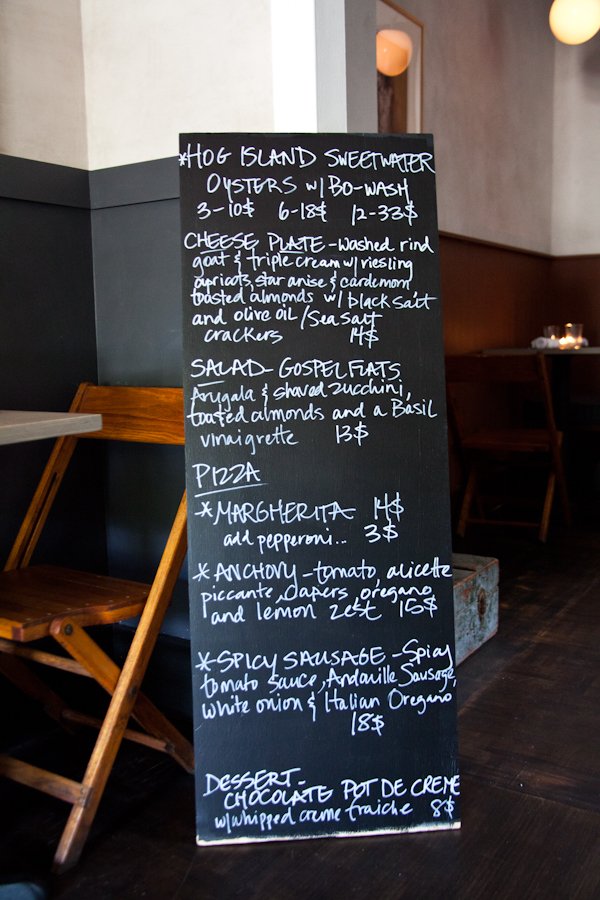 *HOG ISLAND SWEETWATER
OYSTERS w/ BO-WASH
3-10$ 6-18$ 12-33$
CHEESE PLATE - washed rind
goat & triple cream w/ riesling
apricots, star anise & cardemon
toasted almonds w/ black salt
and olive oil / sea salt
crackers 14$
SALAD- GOSPEL FLATS
Arugala & shaved zucchini,
toasted almonds and a Basil
vinaigrette 13$
PIZZA
*MARGHERITA 14$
add pepperoni... 3$
*ANCHOVY - tomato, alicette
piccante, capers, oregano
and lemon zest 15$
*SPICY SAUSAGE - Spicy
tomato sauce, Andouille Sausage,
white onion & Italian Oregano
18$
DESSERT-
CHOCOLATE POT DE CREME
w/ whipped creme fraiche 8$